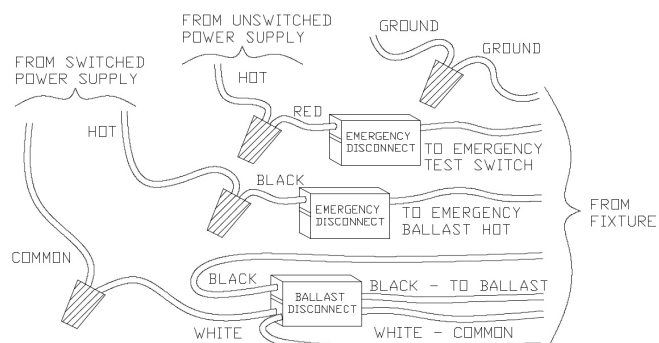 FROM UNSWITCHED
POWER SUPPLY
GROUND
GROUND
FROM SWITCHED
POWER SUPPLY
HOT
RED
HOT
EMERGENCY
DISCONNECT
TO EMERGENCY
TEST SWITCH
BLACK
EMERGENCY
DISCONNECT
TO EMERGENCY
BALLAST HOT
FROM
FIXTURE
COMMON
BLACK
BALLAST
DISCONNECT
BLACK - TO BALLAST
WHITE
WHITE - COMMON